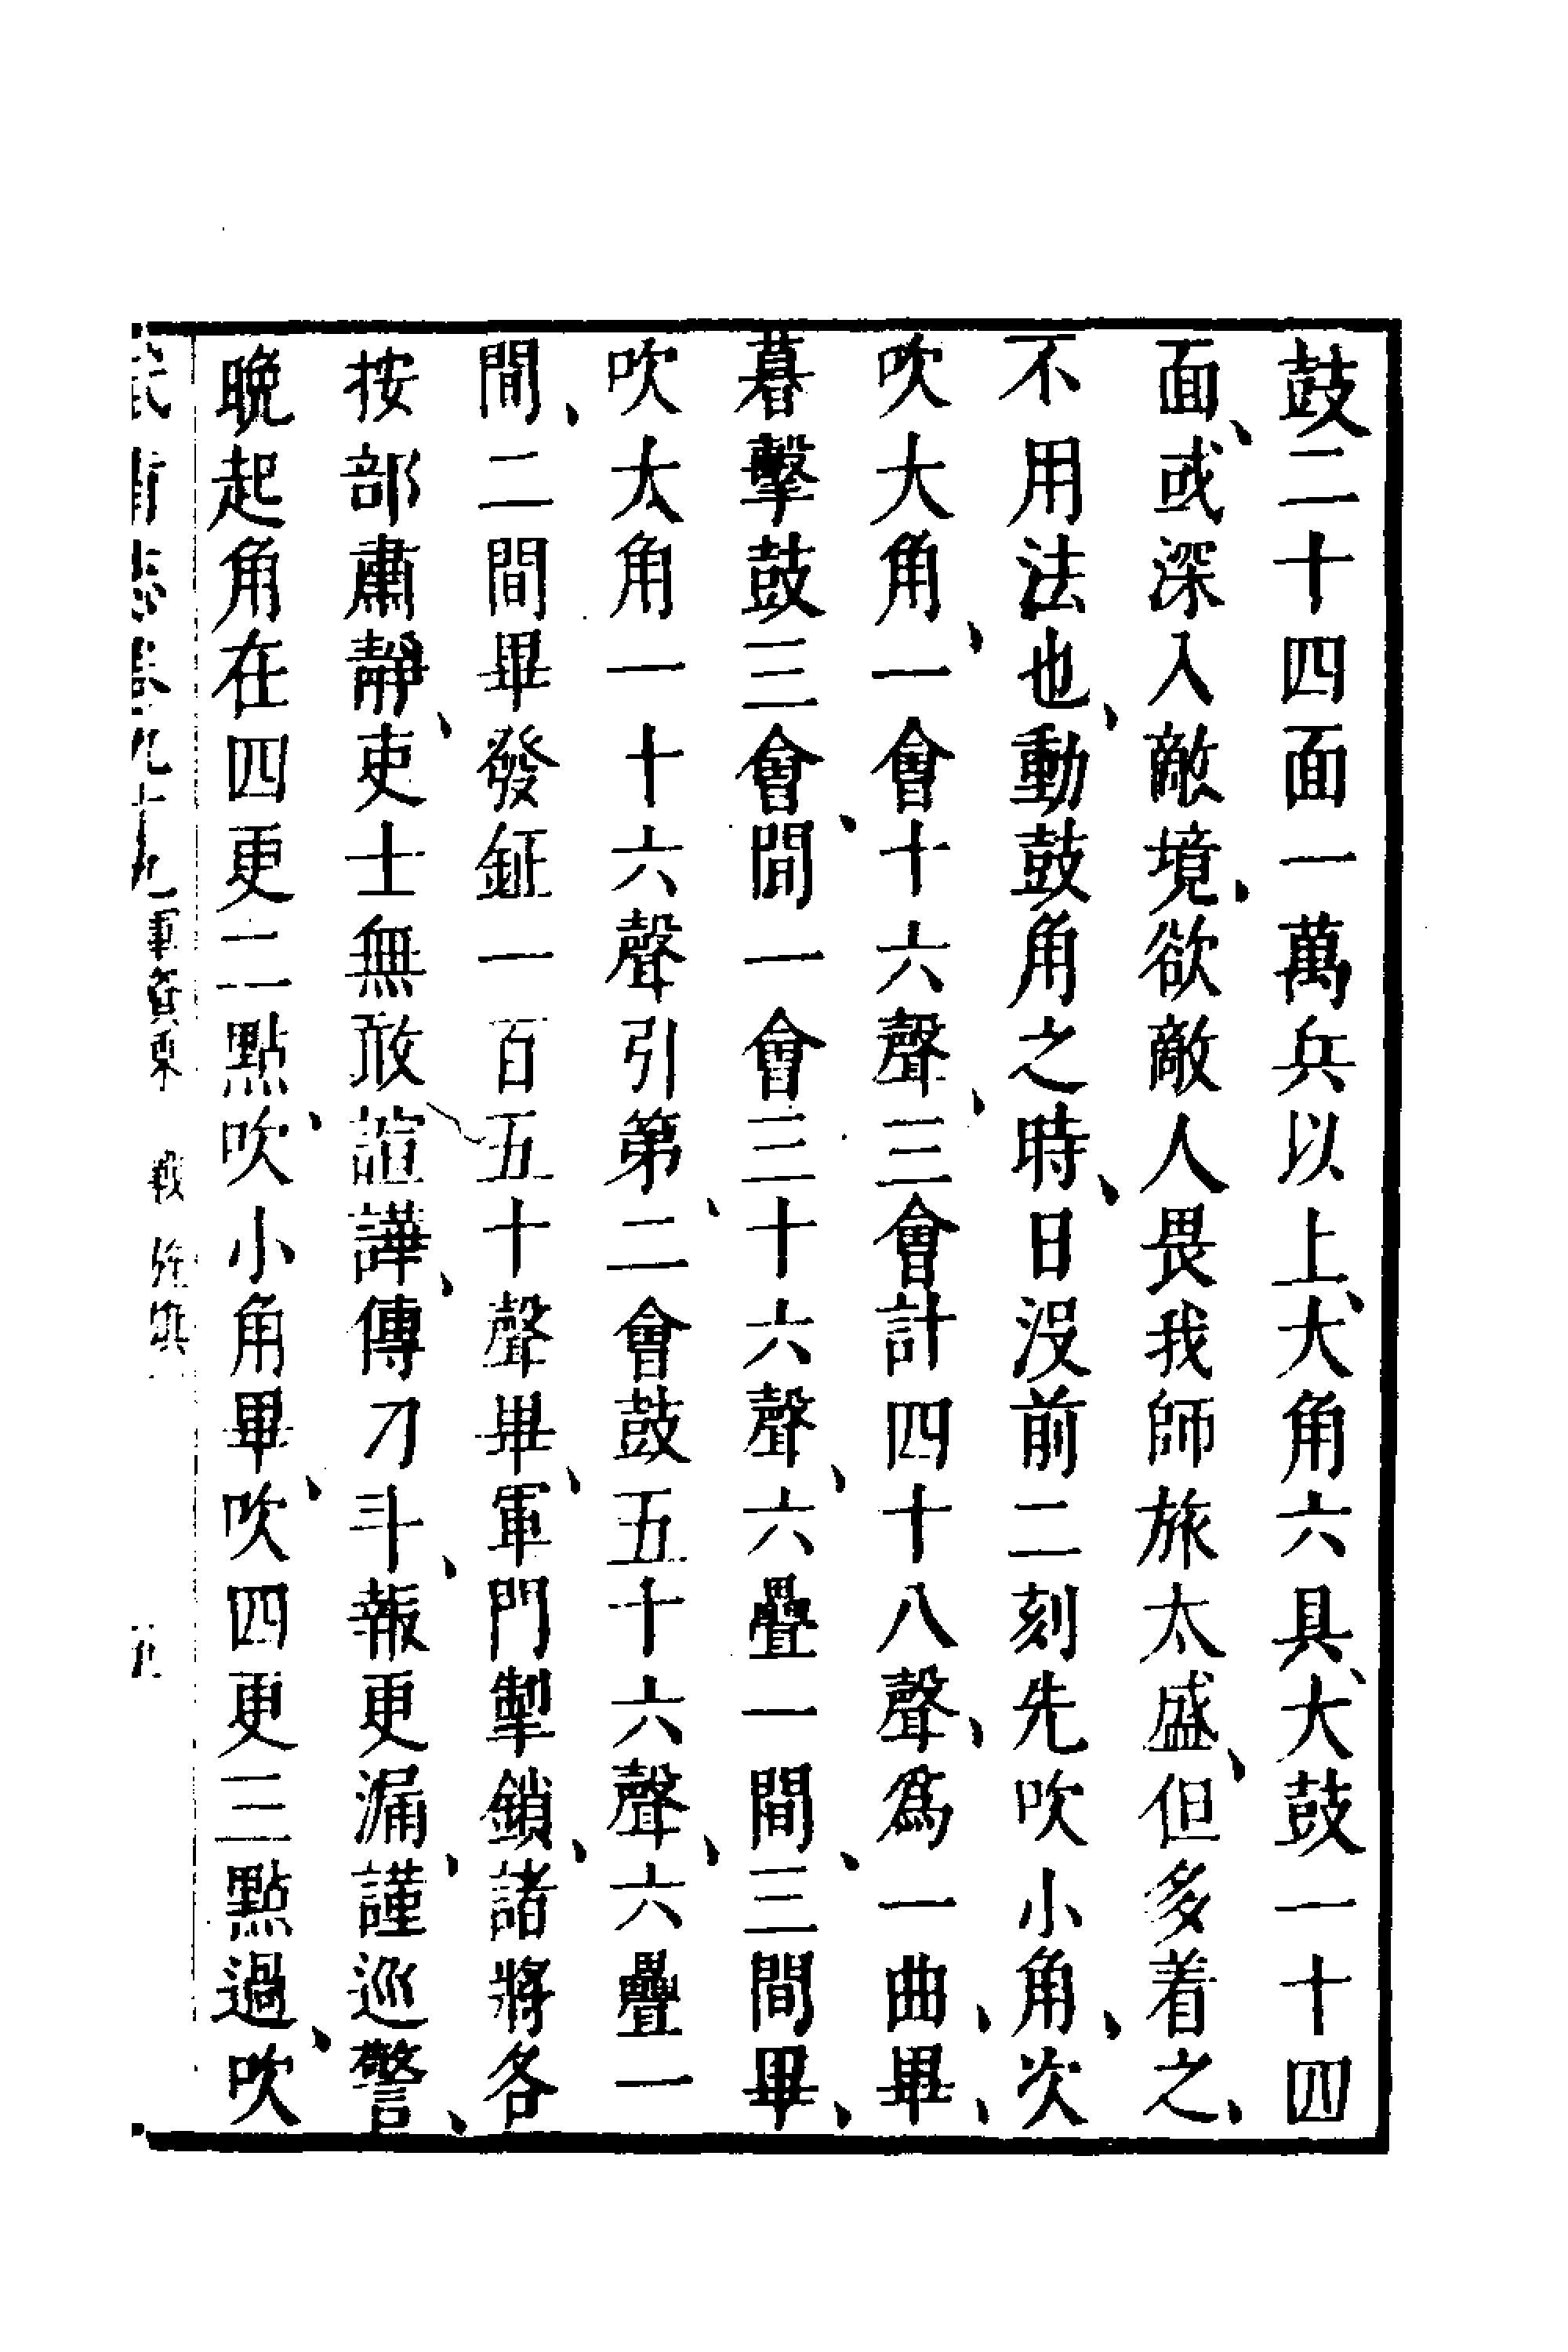 鼓二十四面一萬兵以上、大角六具、大鼓一十四
面、或深入敵境、欲敵人畏我師旅太盛、但多着之、
不用法也、動鼓角之時、日没前二刻先吹小角、次
吹大角、一會十六聲、三會計四十八聲、爲一曲、畢、
暮擊鼓三會、間一會三十六聲、六疊一間、三間畢、
吹大角一十六聲引第、二會鼓五十六聲、六疊一
間、二間畢發鉦一百五十聲畢、軍門掣鎖、諸將各
按部肅靜、吏士無敢諠譁、傳刁斗、報更漏、謹巡警、
晚起角在四更二點、吹小角畢、吹四更三點過、吹
武備志卷九十九 軍資乘 戰 五